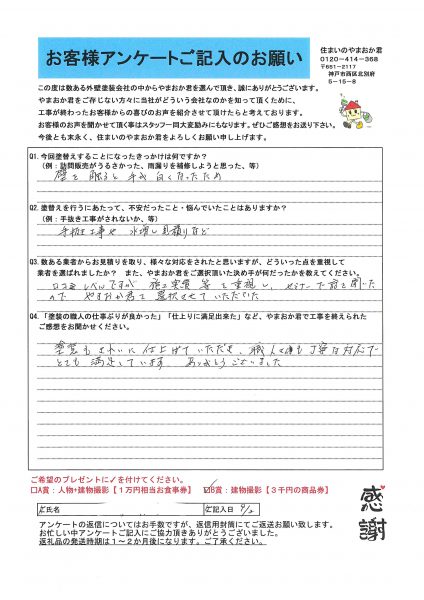 お客様アンケートご記入のお願い
住まいのやまおか君
0120-414-368
〒651-2117
神戸市西区北別府
5-15-8
この度は数ある外壁塗装会社の中からやまおか君を選んで頂き、誠にありがとうございます。
やまおか君をご存じない方々に当社がどういう会社なのかを知って頂くために、
工事が終わったお客様からの喜びのお声を紹介させて頂けたらと考えております。
お客様のお声を聞かせて頂く事はスタッフ一同大変励みにもなります。ぜひご感想をお送り下さい。
今後とも末永く、住まいのやまおか君をよろしくお願い申し上げます。
Q1. 今回塗替えすることになったきっかけは何ですか?
(例:訪問販売がうるさかった、雨漏りを補修しようと思った、等)
壁を触ると手が白くなったため
Q2. 塗替えを行うにあたって、不安だったこと・悩んでいたことはありますか?
(例:手抜き工事がされないか、等)
手抜き工事や水増し見積りなど
Q3. 数ある業者からお見積りを取り、様々な対応をされたと思いますが、どういった点を重視して
業者を選ばれましたか? また、やまおか君をご選択頂いた決め手が何だったかを教えてください。
口コミレベルですが 施工実績 等を重視し、セミナーで話を聞いた
ので やまおか君を選択させていただいた
Q4. 「塗装の職人の仕事ぶりが良かった」「仕上りに満足出来た」など、やまおか君で工事を終えられた
ご感想をお聞かせください。
塗装もきれいに仕上げていただき、職人様も丁寧な対応で
とても満足しています。ありがとうございました
ご希望のプレゼントに✓を付けてください。
□A賞:人物+建物撮影【1万円相当お食事券】 ☑B賞:建物撮影【3千円の商品券】
氏名 ご記入日 4/2
アンケートの返信についてはお手数ですが、返信用封筒にてご返送お願い致します。
お忙しい中アンケートご記入にご協力頂きありがとうございました。
返礼品の発送時期は1~2か月後になります。ご了承ください。
感謝